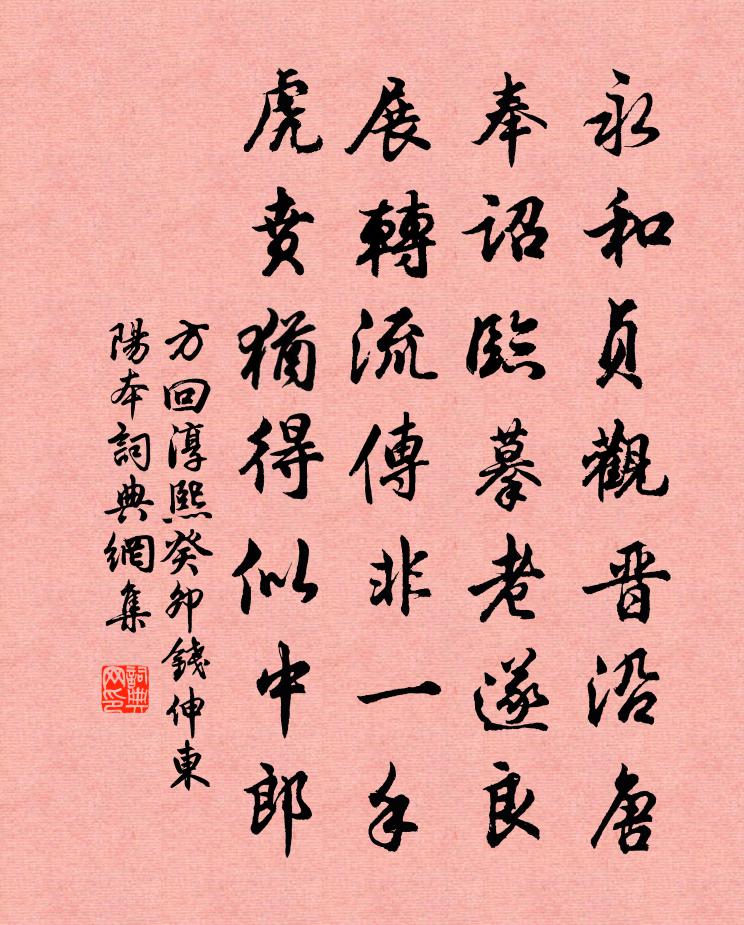 永和貞觀晋沿唐
奉詔臨摹老遂良
展轉流傳非一手
虎賁猶得似中郎
方回淳熙癸卯錢伸東
陽本詞典網集
詞典網印